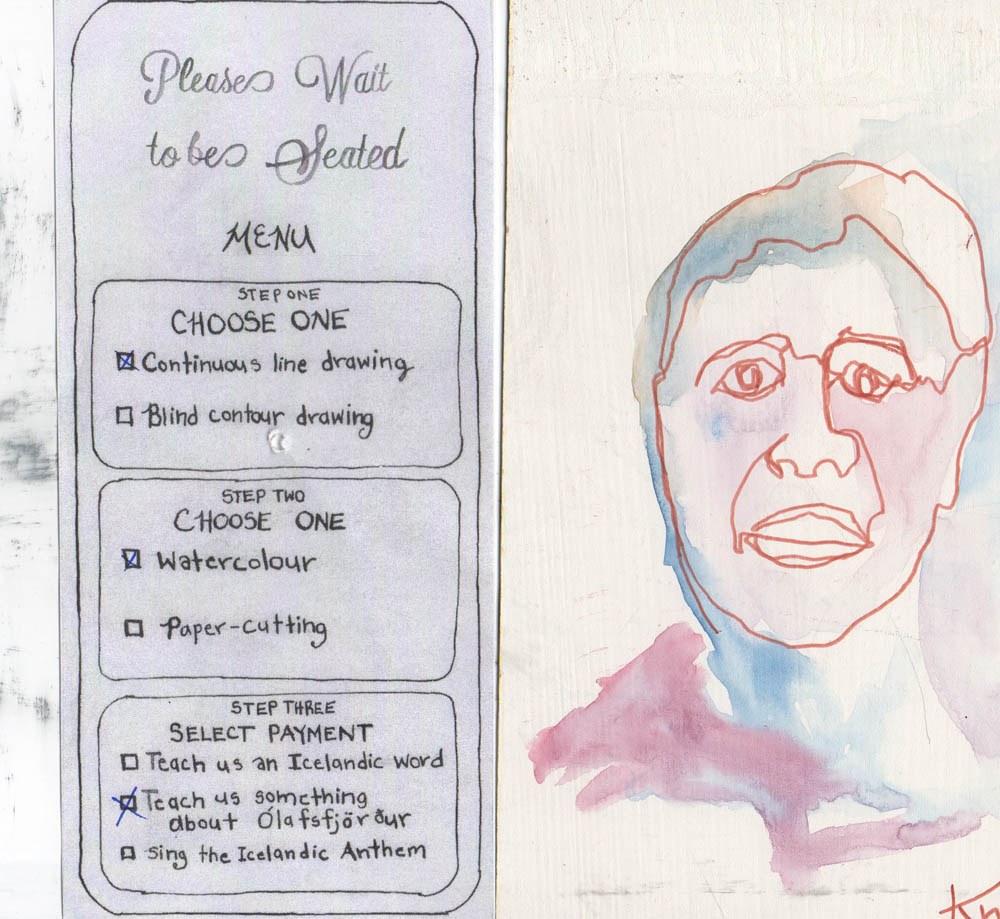 Please Wait
to be Seated
MENU
STEP ONE
CHOOSE ONE
Continuous line drawing
Blind contour drawing
STEP TWO
CHOOSE ONE
Watercolour
Paper-cutting
STEP THREE
SELECT PAYMENT
Teach us an Icelandic word
Teach us something
about Ólafsfjörður
sing the Icelandic Anthem